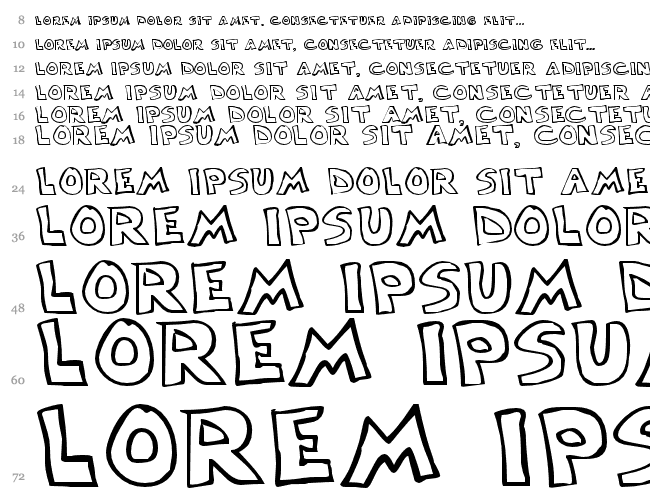 8 LOREM IPSUM DOLOR SIT AMET, CONSECTETUER ADIPISCING ELIT...
10 LOREM IPSUM DOLOR SIT AMET, CONSECTETUER ADIPISCING ELIT...
12 LOREM IPSUM DOLOR SIT AMET, CONSECTETUER ADIPISCIN
14 LOREM IPSUM DOLOR SIT AMET, CONSECTETUER A
16 LOREM IPSUM DOLOR SIT AMET, CONSECTETU
18 LOREM IPSUM DOLOR SIT AMET, CONSEC
24 LOREM IPSUM DOLOR SIT AME
36 LOREM IPSUM DOLOR
48 LOREM IPSUM D
60 LOREM IPSUM
72 LOREM IPS